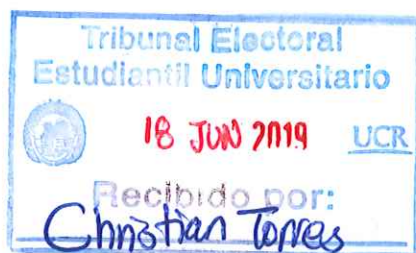 Tribunal Electoral
Estudiantil Universitario
18 JUN 2019
UCR
Recibido por:
Christian Torres